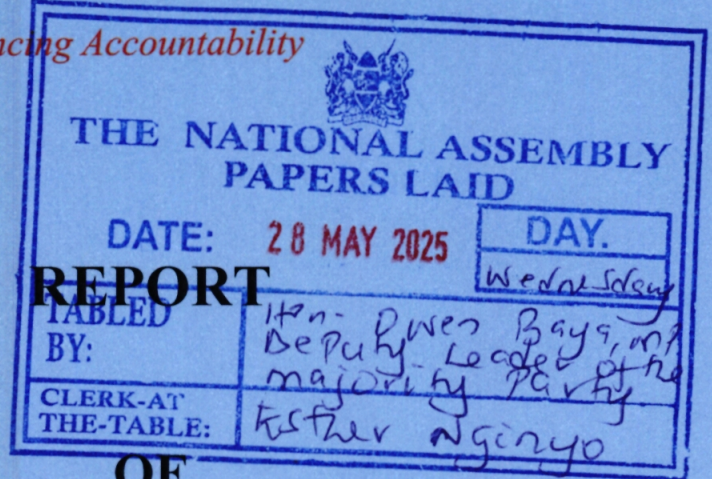 ncing Accountability
THE NATIONAL ASSEMBLY
PAPERS LAID
DATE: 28 MAY 2025
DAY.
Wednesday
REPORT
TABLED
BY:
Hon. Owen Baya, MP
Deputy Leader of the
majority Party
CLERK-AT
THE-TABLE:
Esther Nginyo
OF